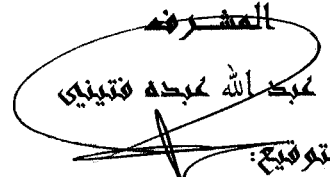 المشرف
عبد الله عبده فتيني
توقيع: